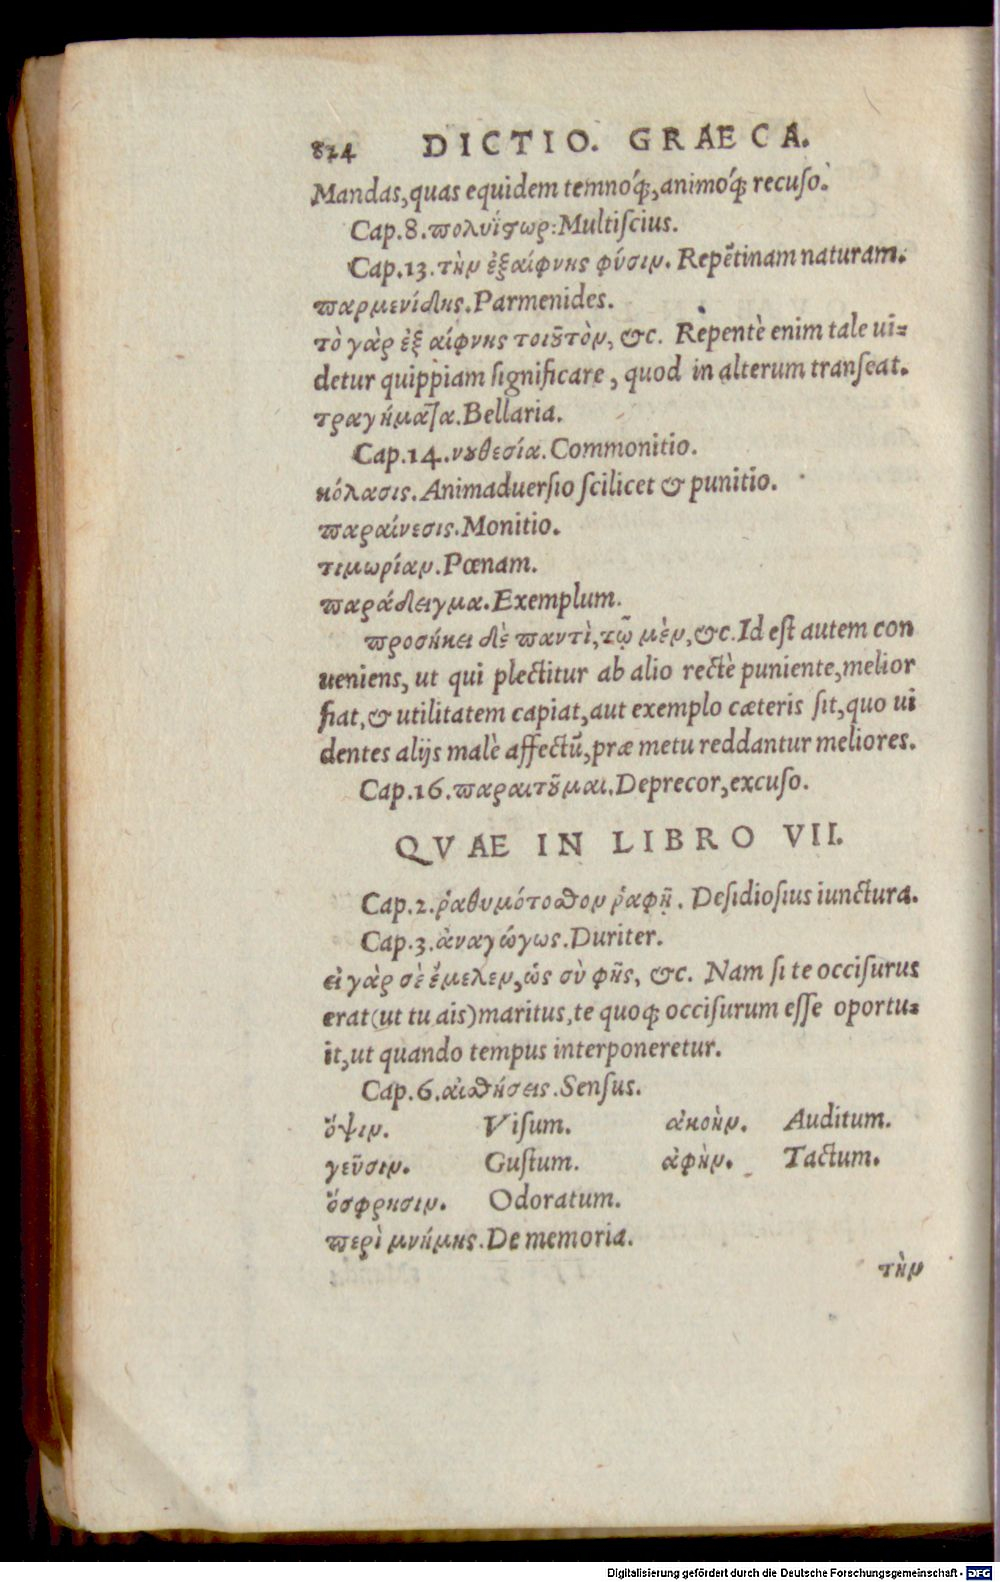 824 DICTIO. GRAECA.
Mandas, quas equidem temnóq́;, animóq́; recuso.
Cap.8. πολυΐστωρ: Multiscius.
Cap.13. τὴν ἐξαίφνης φύσιν. Repẽtinam naturam.
παρμενίδης. Parmenides.
τὸ γὰρ ἐξ αίφνης τοιοῦτὸν, &c. Repentè enim tale ui=
detur quippiam significare, quod in alterum transeat.
τραγήματα. Bellaria.
Cap.14. νουθεσία. Commonitio.
κόλασις. Animaduersio scilicet & punitio.
παραίνεσις. Monitio.
τιμωρίαν. Pœnam.
παράδειγμα. Exemplum.
προσήκει δὲ παντὶ, τῷ μὲν, &c. Id est autem con
ueniens, ut qui plectitur ab alio rectè puniente, melior
fiat, & utilitatem capiat, aut exemplo cæteris sit, quo ui
dentes alijs malè affectũ, præ metu reddantur meliores.
Cap.16. παραιτοῦμαι. Deprecor, excuso.
QVAE IN LIBRO VII.
Cap.2. ῥαθυμότοθον ῥαφῇ. Desidiosius iunctura.
Cap.3. ἀναγώγως. Duriter.
εἰ γὰρ σὲ ἔμελεν, ὡς σὺ φῂς, &c. Nam si te occisurus
erat (ut tu ais) maritus, te quoq; occisurum esse oportu=
it, ut quando tempus interponeretur.
Cap.6. αἰσθήσεις. Sensus.
ὄψιν. Visum. ἀκοὴν. Auditum.
γεῦσιν. Gustum. ἀφὴν. Tactum.
ὄσφρησιν. Odoratum.
περὶ μνήμης. De memoria.
τὴν
Digitalisierung gefördert durch die Deutsche Forschungsgemeinschaft - DFG